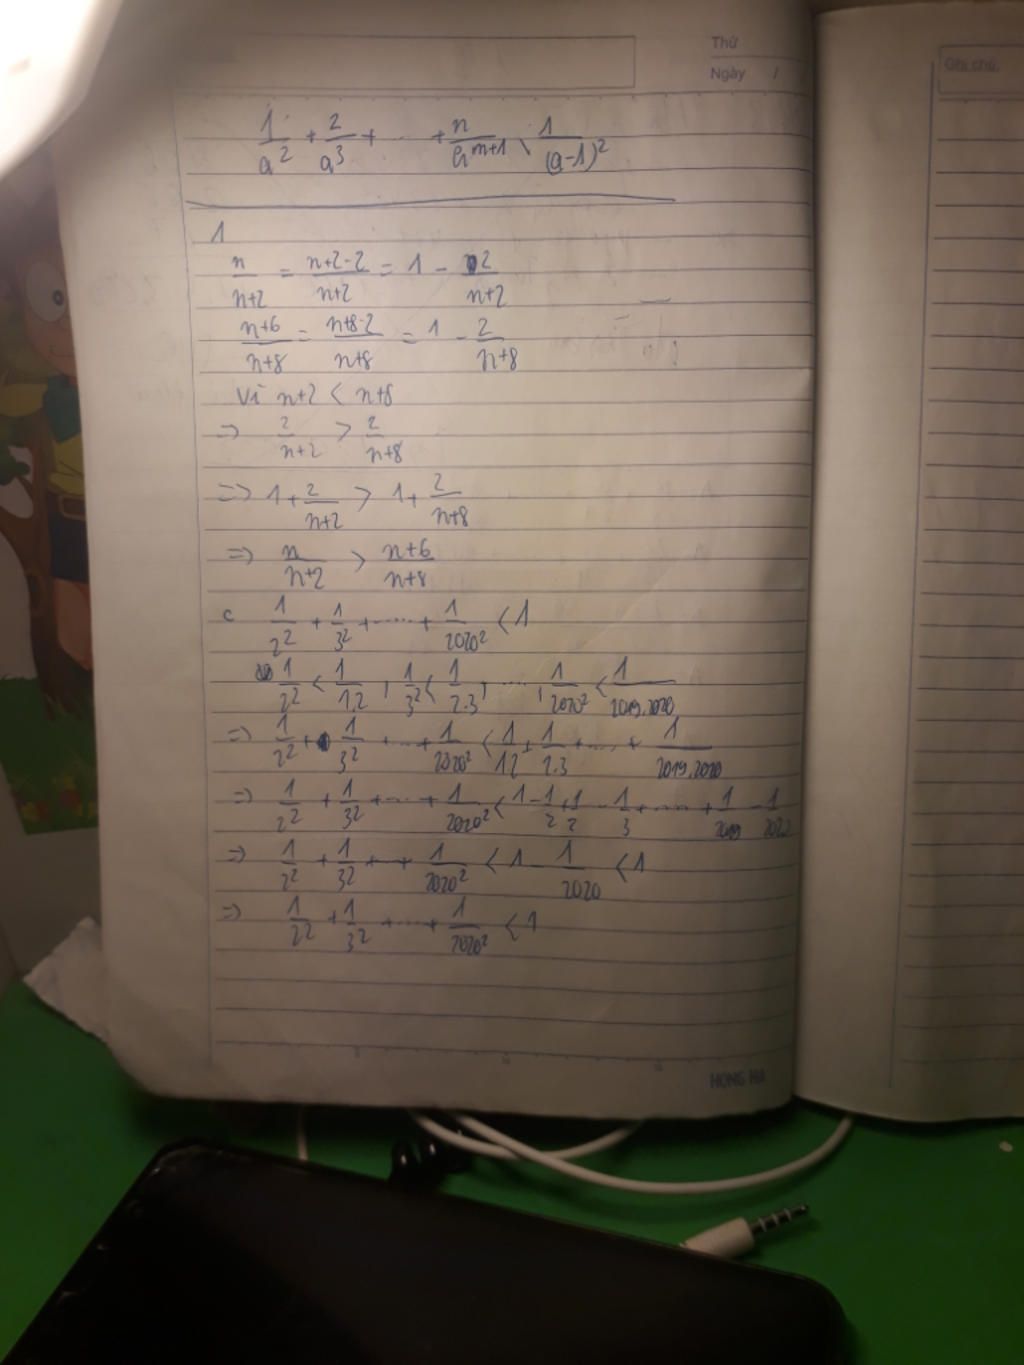 Thứ
Ngày /
Ghi chú:
1/a² + 2/a³ + ..... + n/a^(m+1) \ 1/(a-1)²
1
n/(n+2) = (n+2-2)/(n+2) = 1 - 2/(n+2)
(n+6)/(n+8) = (n+8-2)/(n+8) = 1 - 2/(n+8)
Vì n+2 < n+8
=> 2/(n+2) > 2/(n+8)
=> 1 + 2/(n+2) > 1 + 2/(n+8)
=> n/(n+2) > (n+6)/(n+8)
c 1/2² + 1/3² + ..... + 1/2020² < 1
1/2² < 1/1.2 , 1/3² < 1/2.3 , ..... , 1/2020² < 1/2019.2020
=> 1/2² + 1/3² + ..... + 1/2020² < 1/12 + 1/2.3 + ..... + 1/2019.2020
=> 1/2² + 1/3² + ..... + 1/2020² < 1 - 1/2 + 1/2 - 1/3 + ..... + 1/2019 - 1/2020
=> 1/2² + 1/3² + ... + 1/2020² < 1 - 1/2020 < 1
=> 1/2² + 1/3² + ..... + 1/2020² < 1
HONG HA